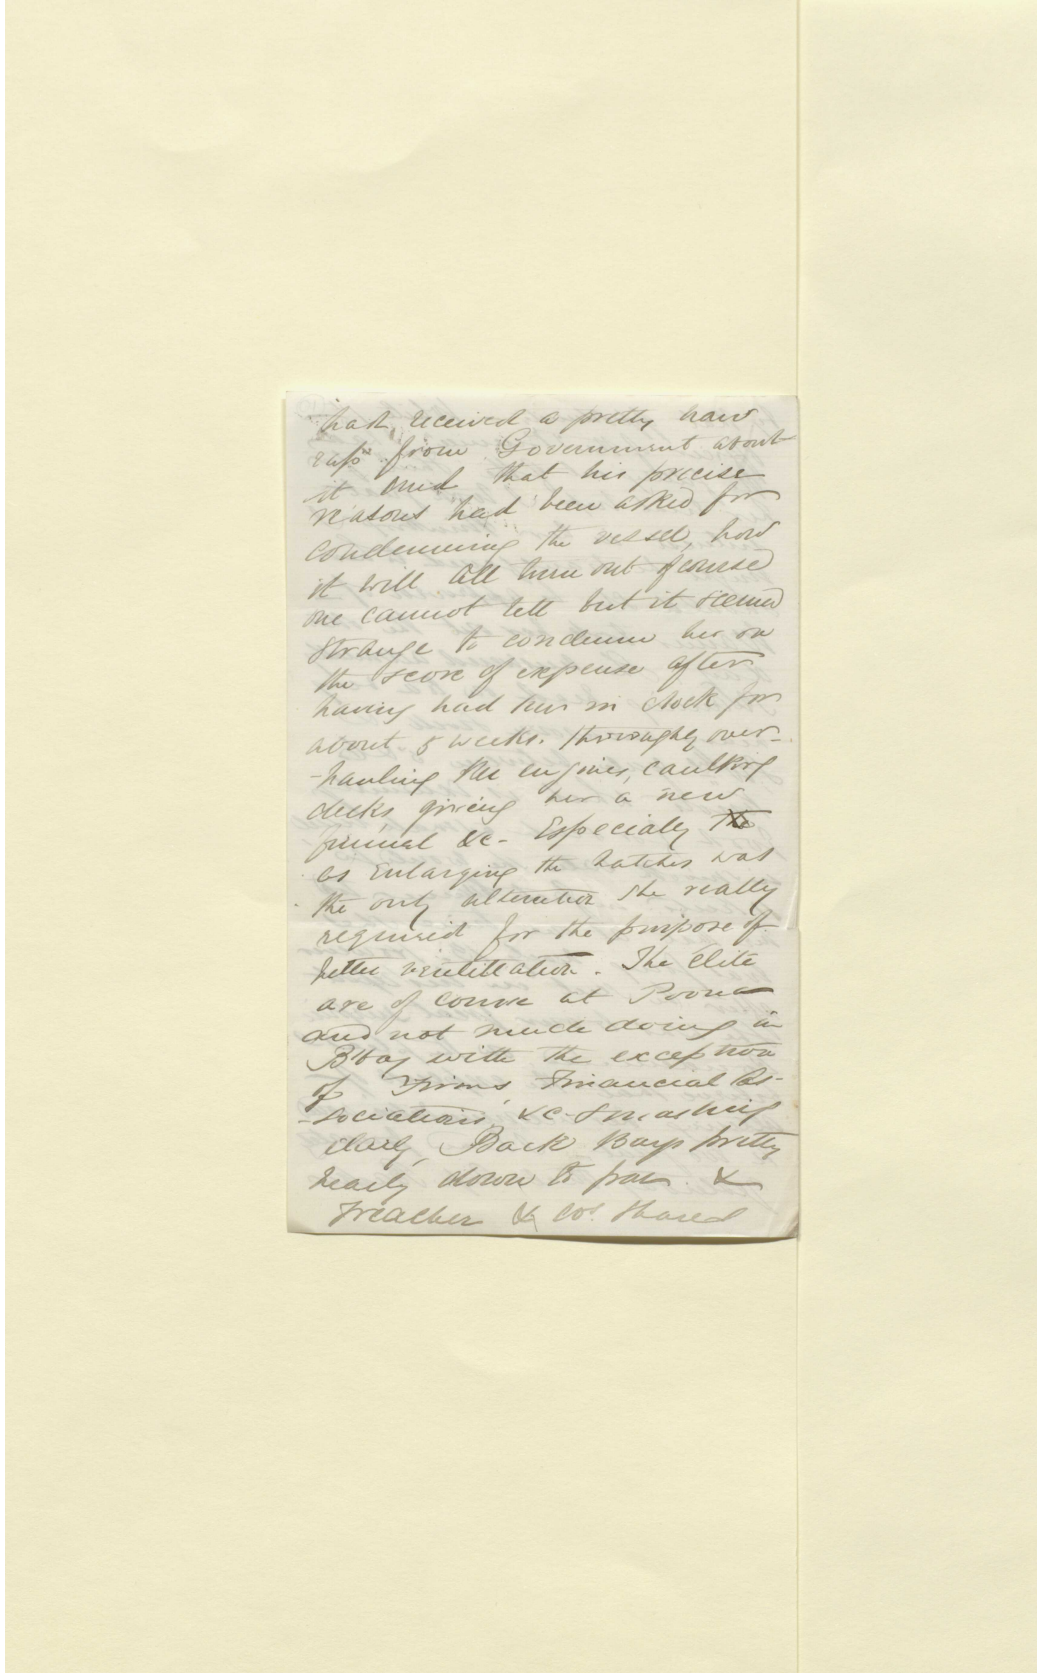 had received a pretty hard
rap from Government about
it and that his precise
reasons had been asked for
condemning the vessel, how
it will all turn out of course
one cannot tell but it seemed
strange to condemn her on
the score of expense after
having had her in dock for
about 5 weeks. thoroughly over-
-hauling her engines, caulking
decks giving her a new
funnel &c - Especially
as enlarging the hatches was
the only alteration she really
required for the purpose of
better ventillation. The Elite
are of course at Poona
and not much doing in
Bbay with the exception
of Firms, Financial As-
-sociations, &c - smashing
daily, Back Bays pretty
nearly down to par &
Treacher & Cos. Shares